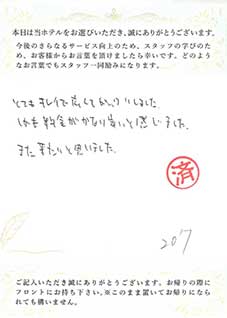 本日は当ホテルをお選びいただき、誠にありがとうございます。
今後のさらなるサービス向上のため、スタッフの学びのため、お客様からお言葉を頂けましたら幸いです。どのようなお言葉でもスタッフ一同励みになります。
とてもキレイで広くてびっくりしました。
しかも料金がかなり安いと感じました。
また来たいと思いました。
済
207
ご記入いただき誠にありがとうございます。お帰りの際に
フロントにお持ち下さい。※このまま置いてお帰りになら
れても構いません。